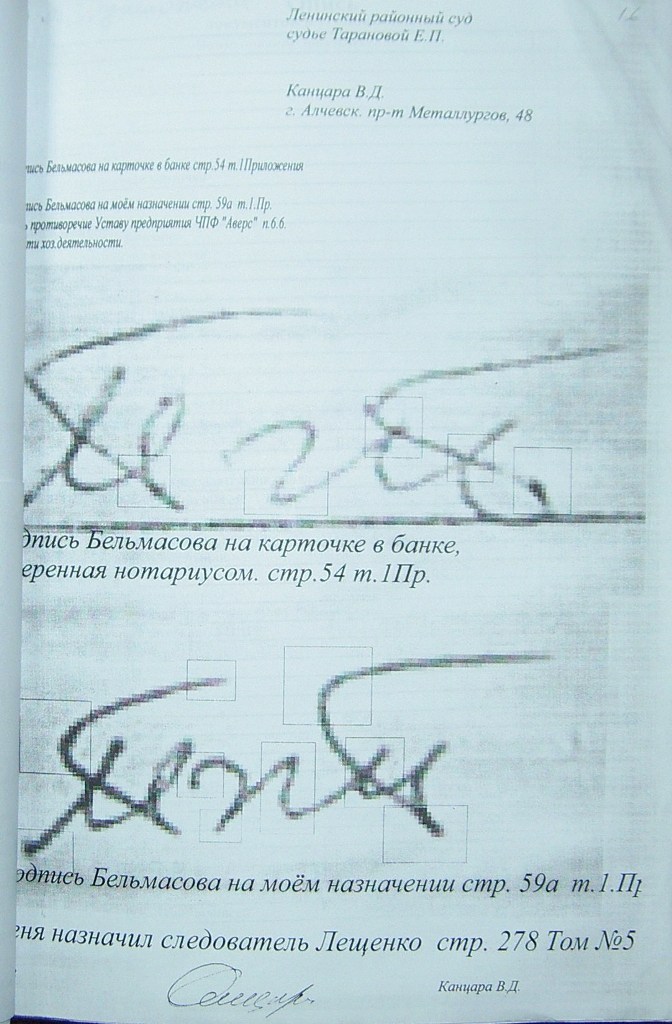 Ленинский районный суд
судье Тарановой Е.П.
Канцара В.Д.
г. Алчевск. пр-т Металлургов, 48
пись Бельмасова на карточке в банке стр.54 т.1Приложения
пись Бельмасова на моём назначении стр. 59а т.1.Пр.
ь противоречие Уставу предприятия ЧПФ "Аверс" п.6.6.
ти хоз.деятельности.
дпись Бельмасова на карточке в банке,
еренная нотариусом. стр.54 т.1Пр.
одпись Бельмасова на моём назначении стр. 59а т.1.Пр
еня назначил следователь Лещенко стр. 278 Том №5
Канцара В.Д.